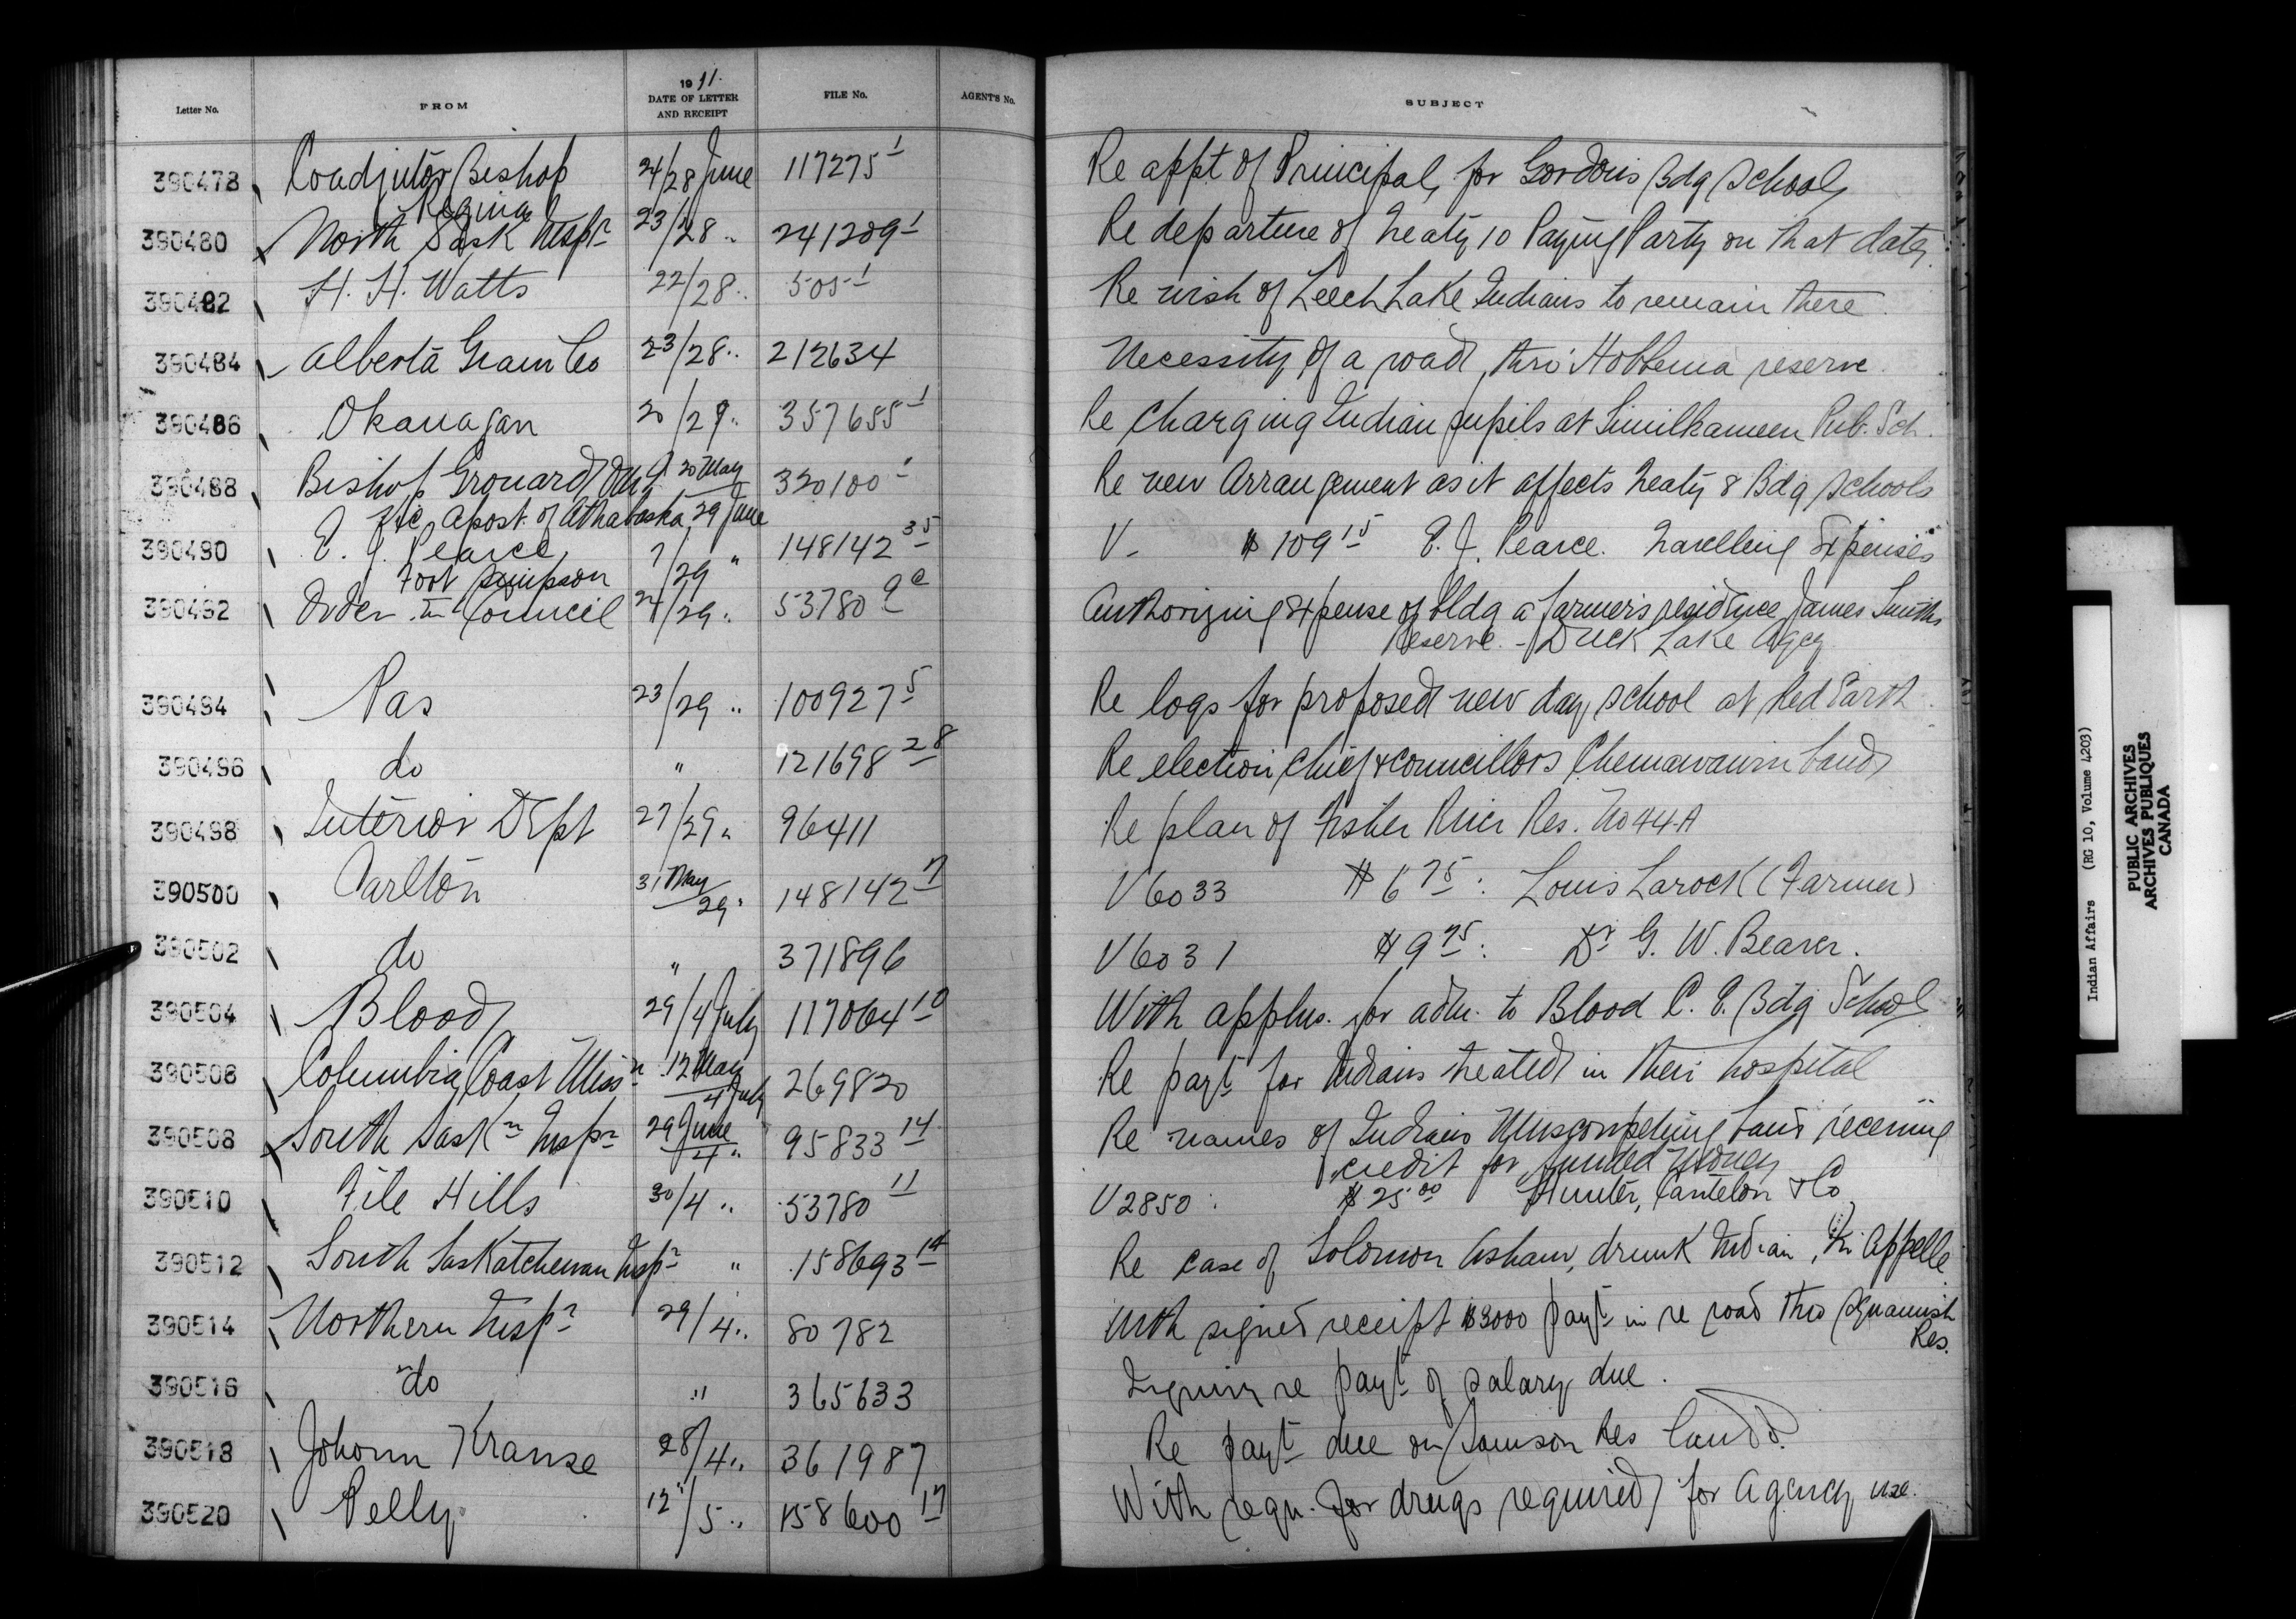 Letter No. FROM 1911. DATE OF LETTER AND RECEIPT FILE No. AGENT'S No. SUBJECT
390478 Coadjutor Bishop Regina 24/28 June 117275-1 Re appt of Principal, for Gordons Bdg School
390480 North Sask Inspr 23/28 .. 241209-1 Re departure of Treaty 10 Paying Party on that date.
390482 H. H. Watts 22/28 .. 505-1 Re wish of Leech Lake Indians to remain there
390484 Alberta Grain Co 23/28 .. 212634 Necessity of a road, thro' Hobbema reserve.
390486 Okanagan 20/29 .. 357655-1 Re Charging Indian pupils at Similkameen Pub. Sch.
390488 Bishop Grouard 20 May 320100-1 Re new Arrangement as it affects Treaty 8 Bdg Schools
Apost. of Athabaska 29 June
390490 E. J. Pearce, Fort Simpson 7/29 " 148142-35 V- $109.15 E. J. Pearce. Travelling Expenses
390492 Order in Council 24/29 .. 53780 Authorizing Expense of Bldg a farmer's residence James Smiths
Reserve. - Duck Lake Agcy
390494 Pas 23/29 .. 100927-5 Re logs for proposed new day school at Red Earth.
390496 do " 121698-28 Re election Chief & councillors Chemawawin band
390498 Interior Dept 27/29 .. 96411 Re plan of Fisher River Res. No 44A
390500 Carlton 31 May/29 " 148142-7 V6033 $6.75: Louis Larock (Farmer)
390502 do " 371896 V6031 $9.75: Dr G. W. Beaver.
390504 Blood 29/4 July 117064-10 With applns. for adm. to Blood C. E. Bdg School
390506 Columbia Coast Missn 12 May/4 July 269820 Re payt for Indians treated in their hospital
390508 South Saskn Inspr 29 June/4 .. 95833-14 Re names of Indians Muscowpetung band receiving
credit for funded money
390510 File Hills 30/4 .. 53780-11 V2850: $25.00 Hunter, Cantelon & Co
390512 South Saskatchewan Inspr " 158693-14 Re case of Solomon Asham, drunk Indian, Qu'Appelle
390514 Northern Inspr 29/4 .. 80782 With signed receipt $3000 payt in re road thro Squamish
Res.
390516 do " 365633 Inquiry re payt of salary due.
390518 Johann Krause 28/4 .. 361987 Re payt due on Samson Res land
390520 Pelly 12/5 .. 158600-17 With reqn. for drugs required for agency use.
Indian Affairs (RG 10, Volume 4203)
PUBLIC ARCHIVES
ARCHIVES PUBLIQUES
CANADA